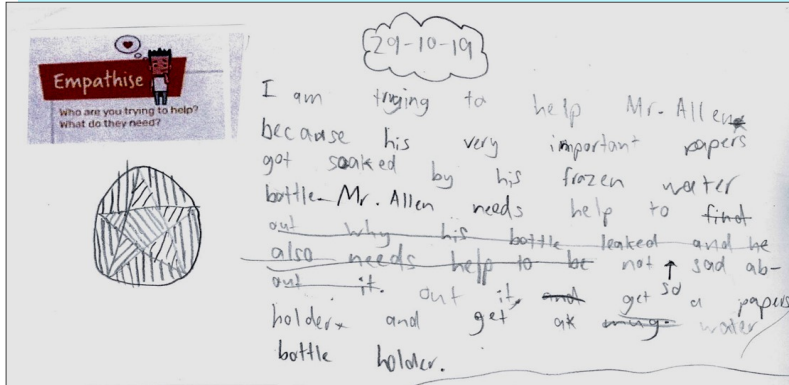 Empathise
Who are you trying to help?
What do they need?
29-10-19
I am trying to help Mr. Allen
because his very important papers
got soaked by his frozen water
bottle. Mr. Allen needs help to find
out why his bottle leaked and he
also needs help to be not so sad ab-
out it. out it, and get a papers
holder and get mug. water
bottle holder.